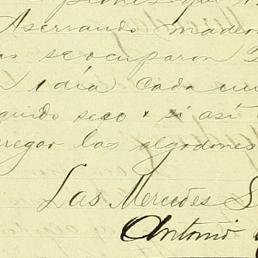 Aserrando madera
as se ocuparon
1 dia cada un
seco x si así
regar los algodones
Las Mercedes S
Antonio